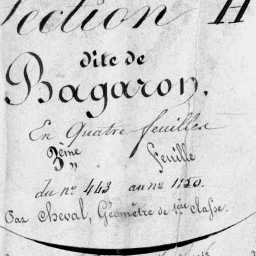 Section H
dite de
Bagaron.
En Quatre feuilles
3ème Feuille
du nº 443 au nº 1250.
Par Cheval, Géomètre de 1ère classe.